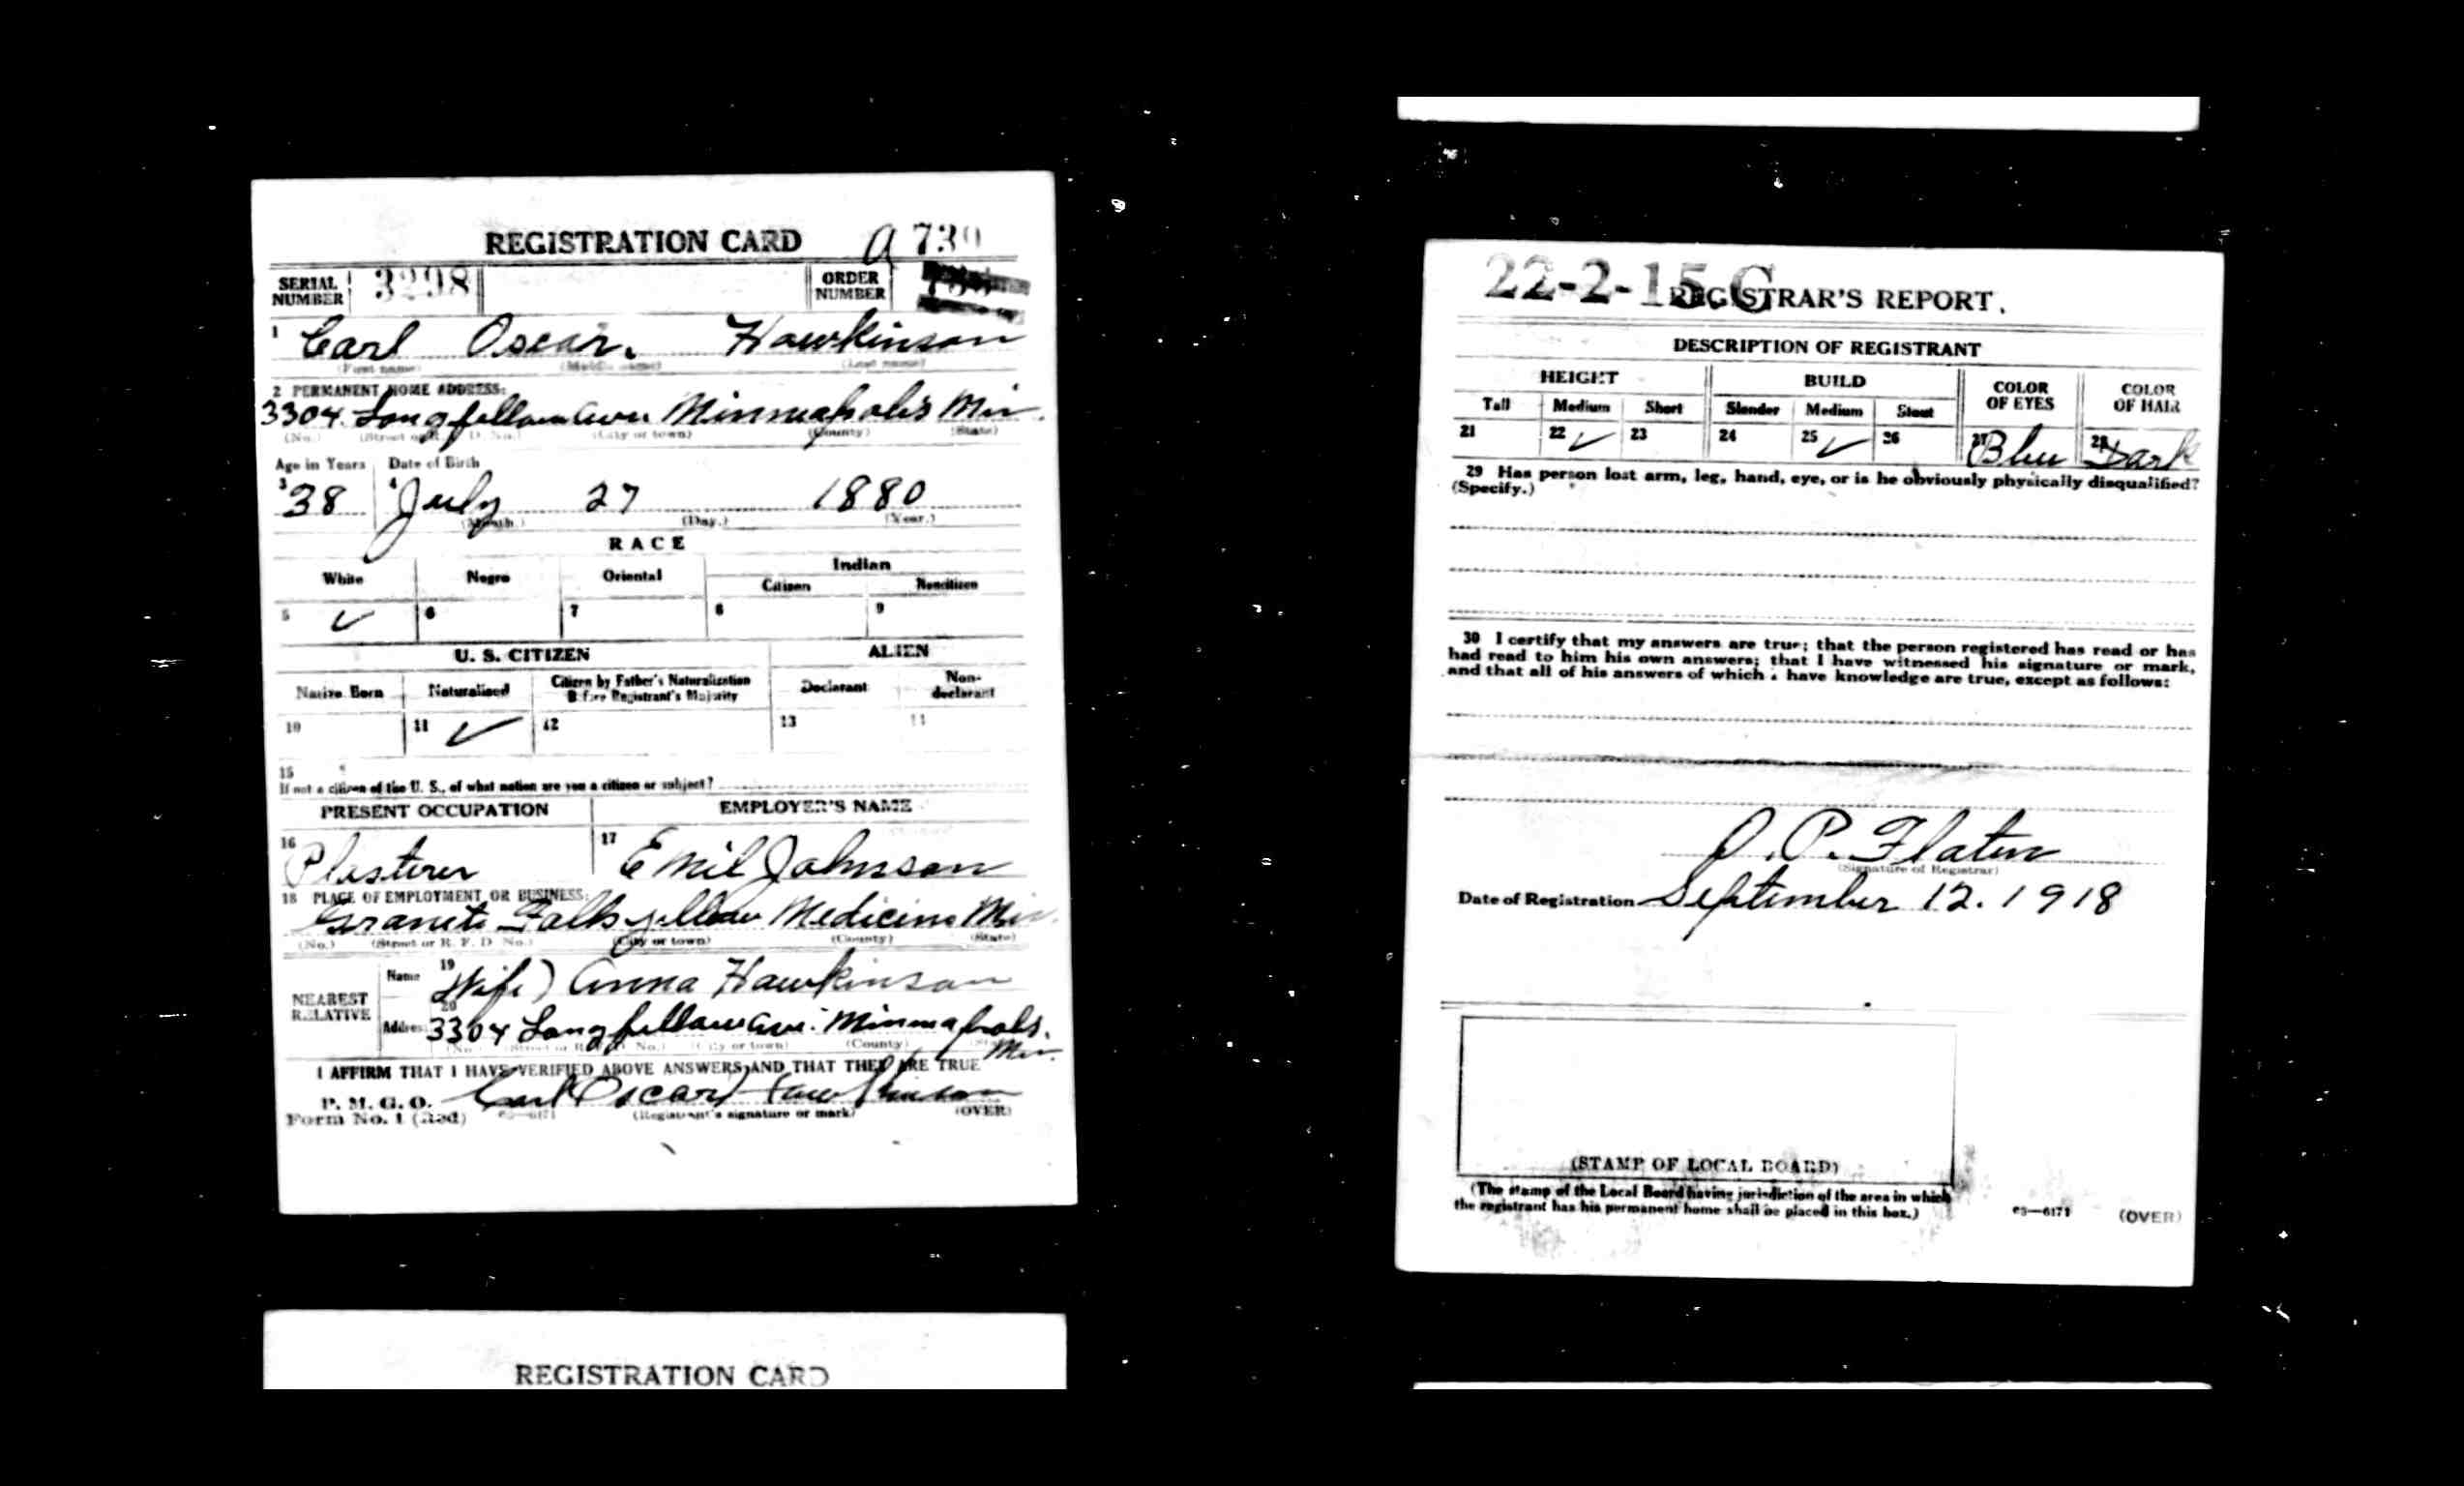 REGISTRATION CARD a 739
SERIAL NUMBER 3298 ORDER NUMBER
1 Carl Oscar. Hawkinson
(First name) (Middle name) (Last name)
2 PERMANENT HOME ADDRESS:
3304 Longfellow Ave Minneapolis Min.
(No.) (Street or R. F. D. No.) (City or town) (County) (State)
Age in Years Date of Birth
3 38 4 July 27 1880
(Month.) (Day.) (Year.)
RACE
White Negro Oriental Indian
Citizen Noncitizen
5 ✓ 6 7 8 9
U. S. CITIZEN ALIEN
Native Born Naturalized Citizen by Father's Naturalization Before Registrant's Majority Declarant Non-declarant
10 11 ✓ 12 13 14
15
If not a citizen of the U. S., of what nation are you a citizen or subject?
PRESENT OCCUPATION EMPLOYER'S NAME
16 Plasterer 17 Emil Johnson
18 PLACE OF EMPLOYMENT OR BUSINESS:
Granite Falls yellow Medicine Min.
(No.) (Street or R. F. D. No.) (City or town) (County) (State)
NEAREST RELATIVE Name 19 Wife) Anna Hawkinson
Address 20 3304 Longfellow Ave. Minneapolis. Min.
(No.) (Street or R. F. D. No.) (City or town) (County) (State)
I AFFIRM THAT I HAVE VERIFIED ABOVE ANSWERS AND THAT THEY ARE TRUE
P. M. G. O. Carl Oscar Hawkinson
Form No. 1 (Red) 03—6171 (Registrant's signature or mark) (OVER)
REGISTRATION CARD
22-2-15.C
REGISTRAR'S REPORT.
DESCRIPTION OF REGISTRANT
HEIGHT BUILD COLOR OF EYES COLOR OF HAIR
Tall Medium Short Slender Medium Stout
21 22 ✓ 23 24 25 ✓ 26 27 Blue 28 Dark
29 Has person lost arm, leg, hand, eye, or is he obviously physically disqualified?
(Specify.)
30 I certify that my answers are true; that the person registered has read or has
had read to him his own answers; that I have witnessed his signature or mark,
and that all of his answers of which I have knowledge are true, except as follows:
O. P. Flaten
(Signature of Registrar)
Date of Registration September 12. 1918
(STAMP OF LOCAL BOARD)
(The stamp of the Local Board having jurisdiction of the area in which
the registrant has his permanent home shall be placed in this box.)
03—6171 (OVER)